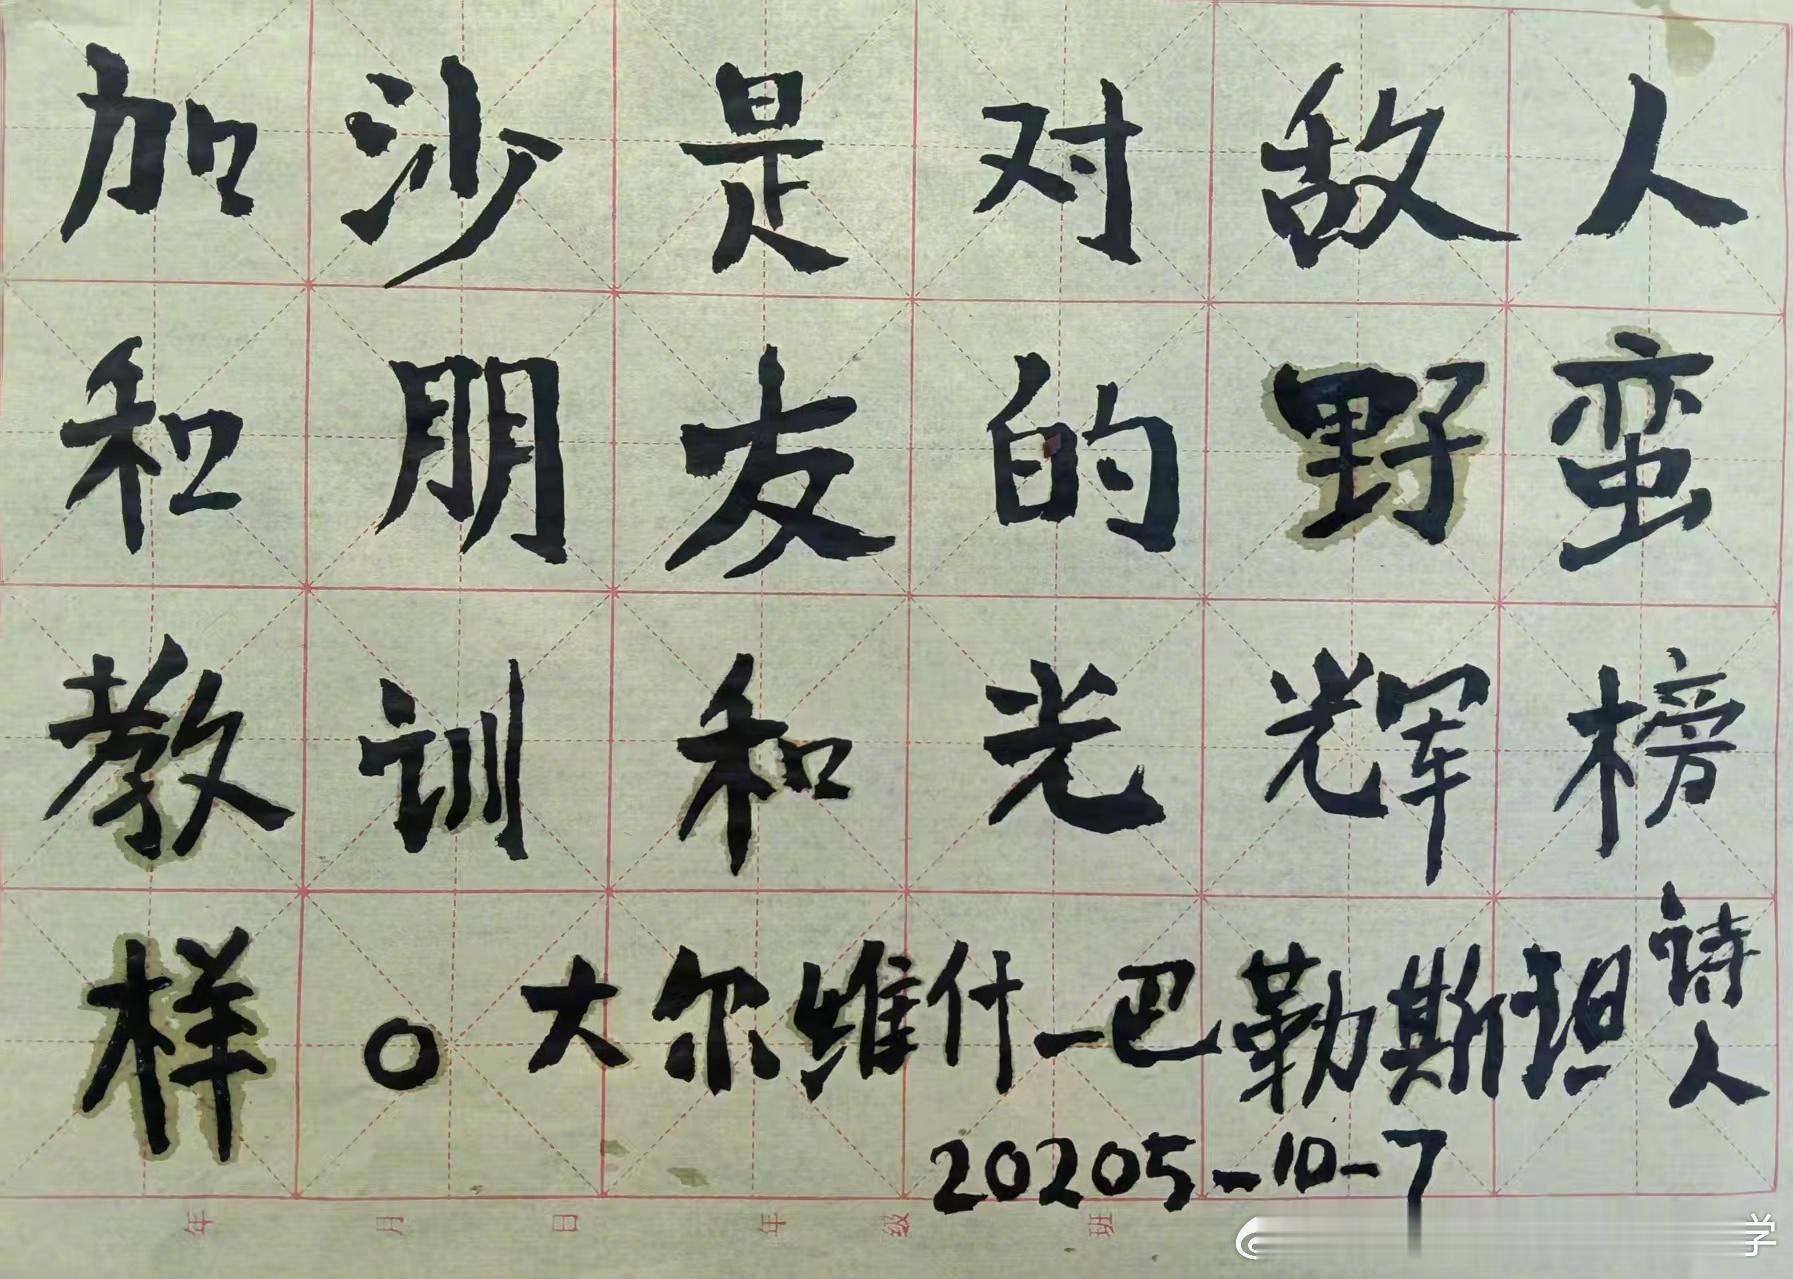 加沙是对敌人
和朋友的野蛮
教训和光辉榜
样。大尔维什—巴勒斯坦诗人
20205-10-7
年 月 日 年 级 班
学